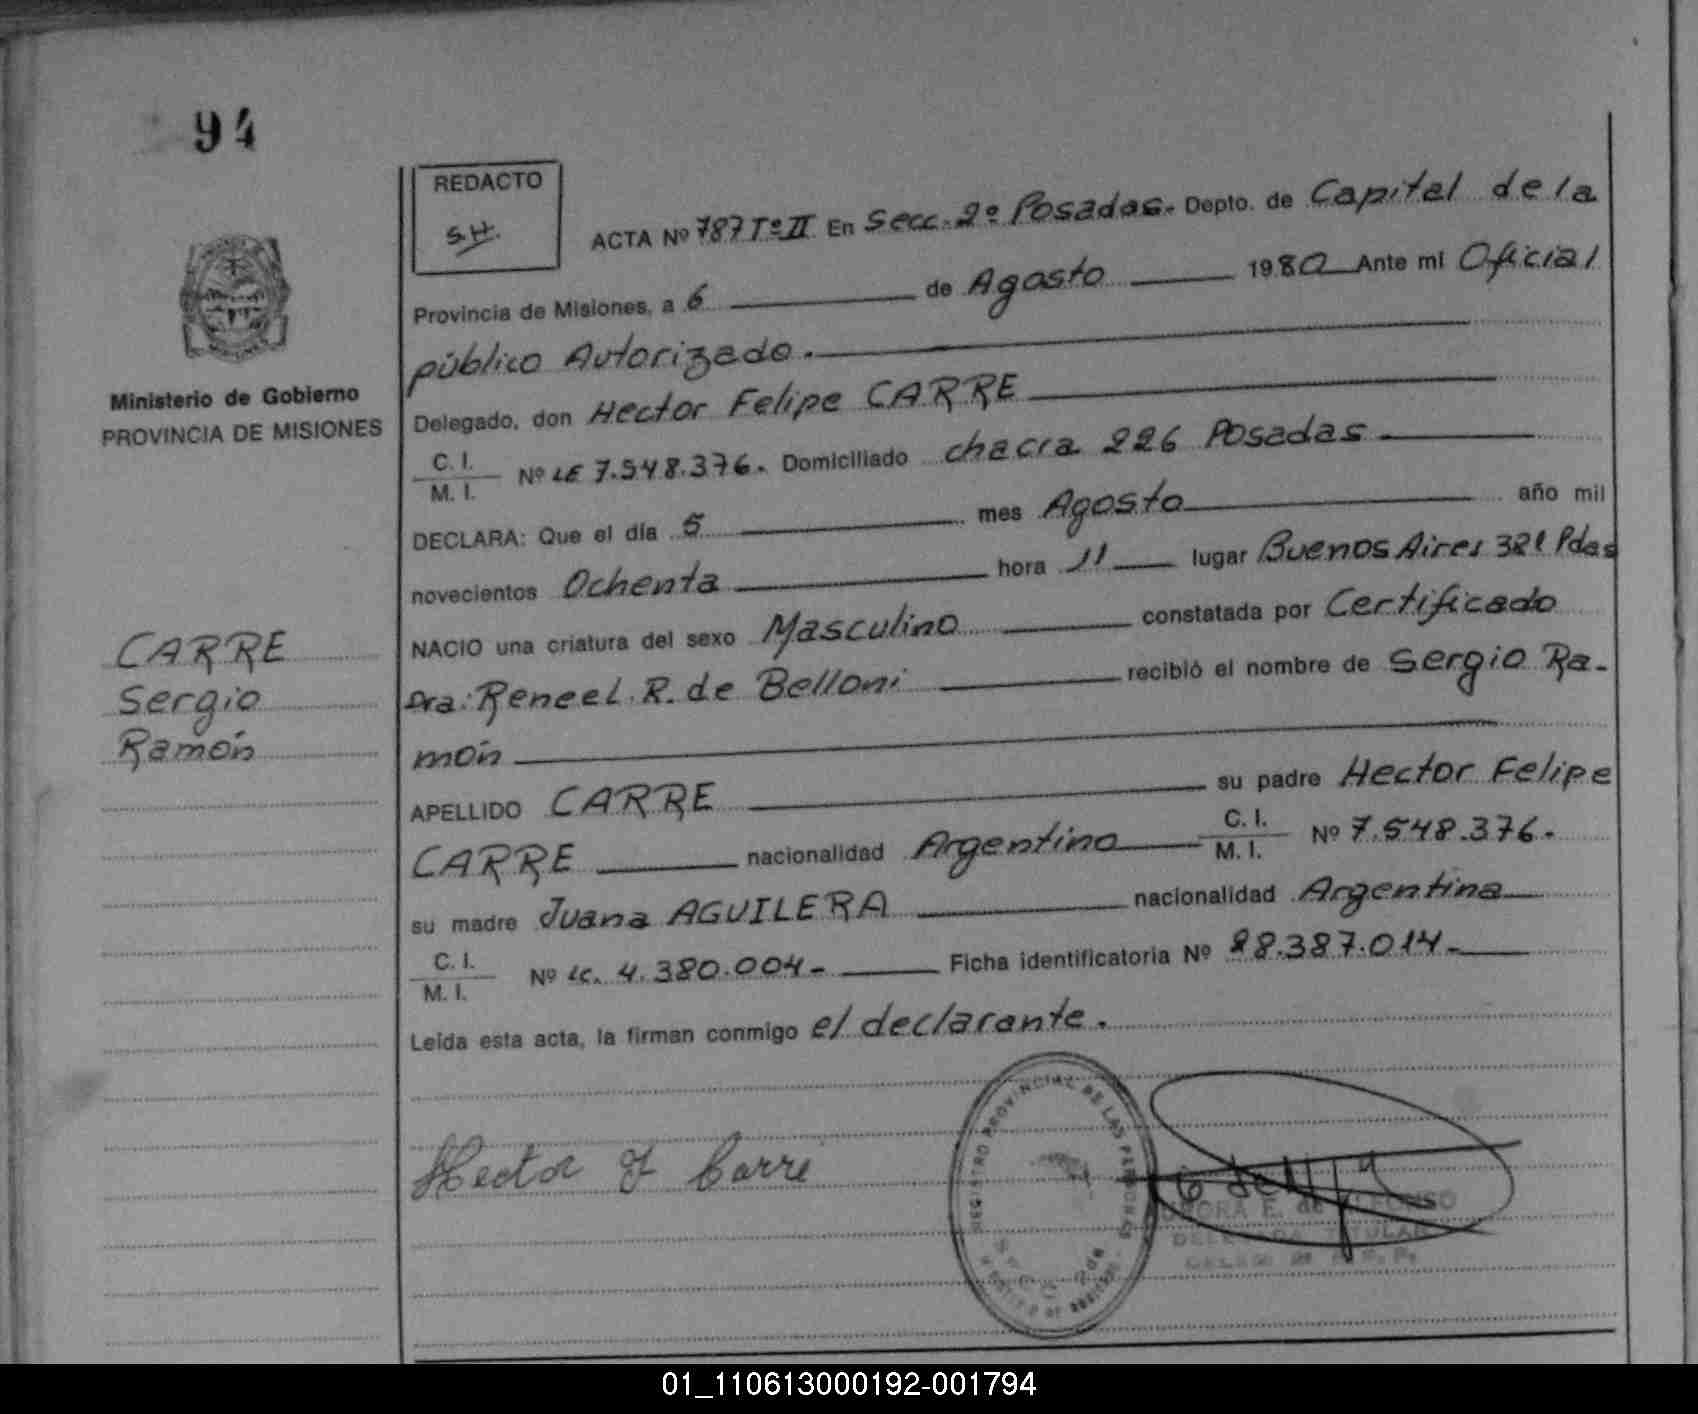 94
REDACTO
S.H.
ACTA Nº 787 Tº II En Secc. 2º Posadas. Depto. de Capital de la
Provincia de Misiones, a 6 de Agosto 1980 Ante mi Oficial
público Autorizado.
Ministerio de Gobierno
PROVINCIA DE MISIONES
Delegado, don Hector Felipe CARRE
C. I.
M. I. Nº LE 7.548.376. Domiciliado chacra 226 Posadas.
DECLARA: Que el día 5 mes Agosto año mil
novecientos Ochenta hora 11 lugar Buenos Aires 381 Pdas
NACIO una criatura del sexo Masculino constatada por Certificado
CARRE
Sergio
Ramón
Dra: Reneel R. de Belloni recibió el nombre de Sergio Ra-
món
APELLIDO CARRE su padre Hector Felipe
CARRE nacionalidad Argentino C. I. M. I. Nº 7.548.376.
su madre Juana AGUILERA nacionalidad Argentina
C. I.
M. I. Nº LC. 4.380.004- Ficha identificatoria Nº 28.387.014-
Leída esta acta, la firman conmigo el declarante.
Hector F Carre
REGISTRO PROVINCIAL DE LAS PERSONAS
SECC 2da
DELEGADA TITULAR
01_110613000192-001794